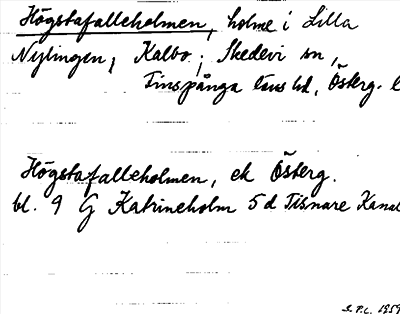 Högstafalleholmen, holme i Lilla
Nylingen, Kalbo, Skedevi sn,
Finspånga läns hd, Österg. l
Högstafalleholmen, ek Österg.
bl. 9 G Katrineholm 5 d Tisnare Kanal
S.P.L. 1959